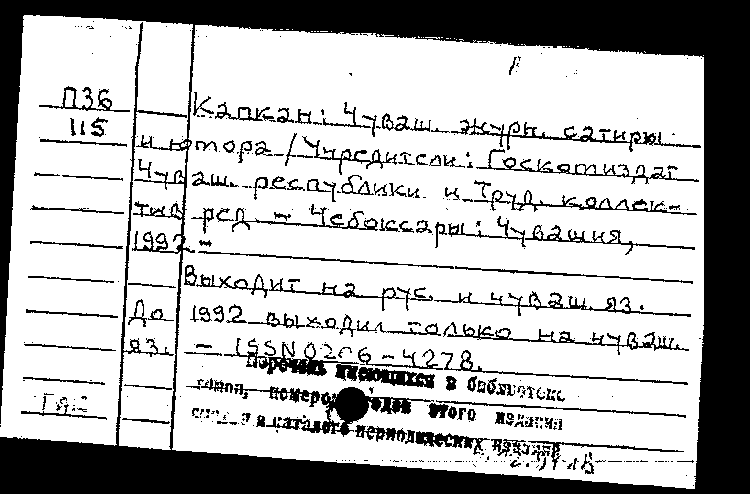 П36
115
Капкан: Чуваш. журн. сатиры
и юмора / Учредители: Госкомиздат
Чуваш. республики и Труд. коллек-
тив ред. - Чебоксары: Чувашия,
1992 -
Выходит на рус. и чуваш. яз.
До 1992 выходил только на чуваш.
яз. - ISSN 0206-4278.
Перечень имеющихся в библиотеке
томов, номеров, годов этого издания
в каталоге периодических изданий